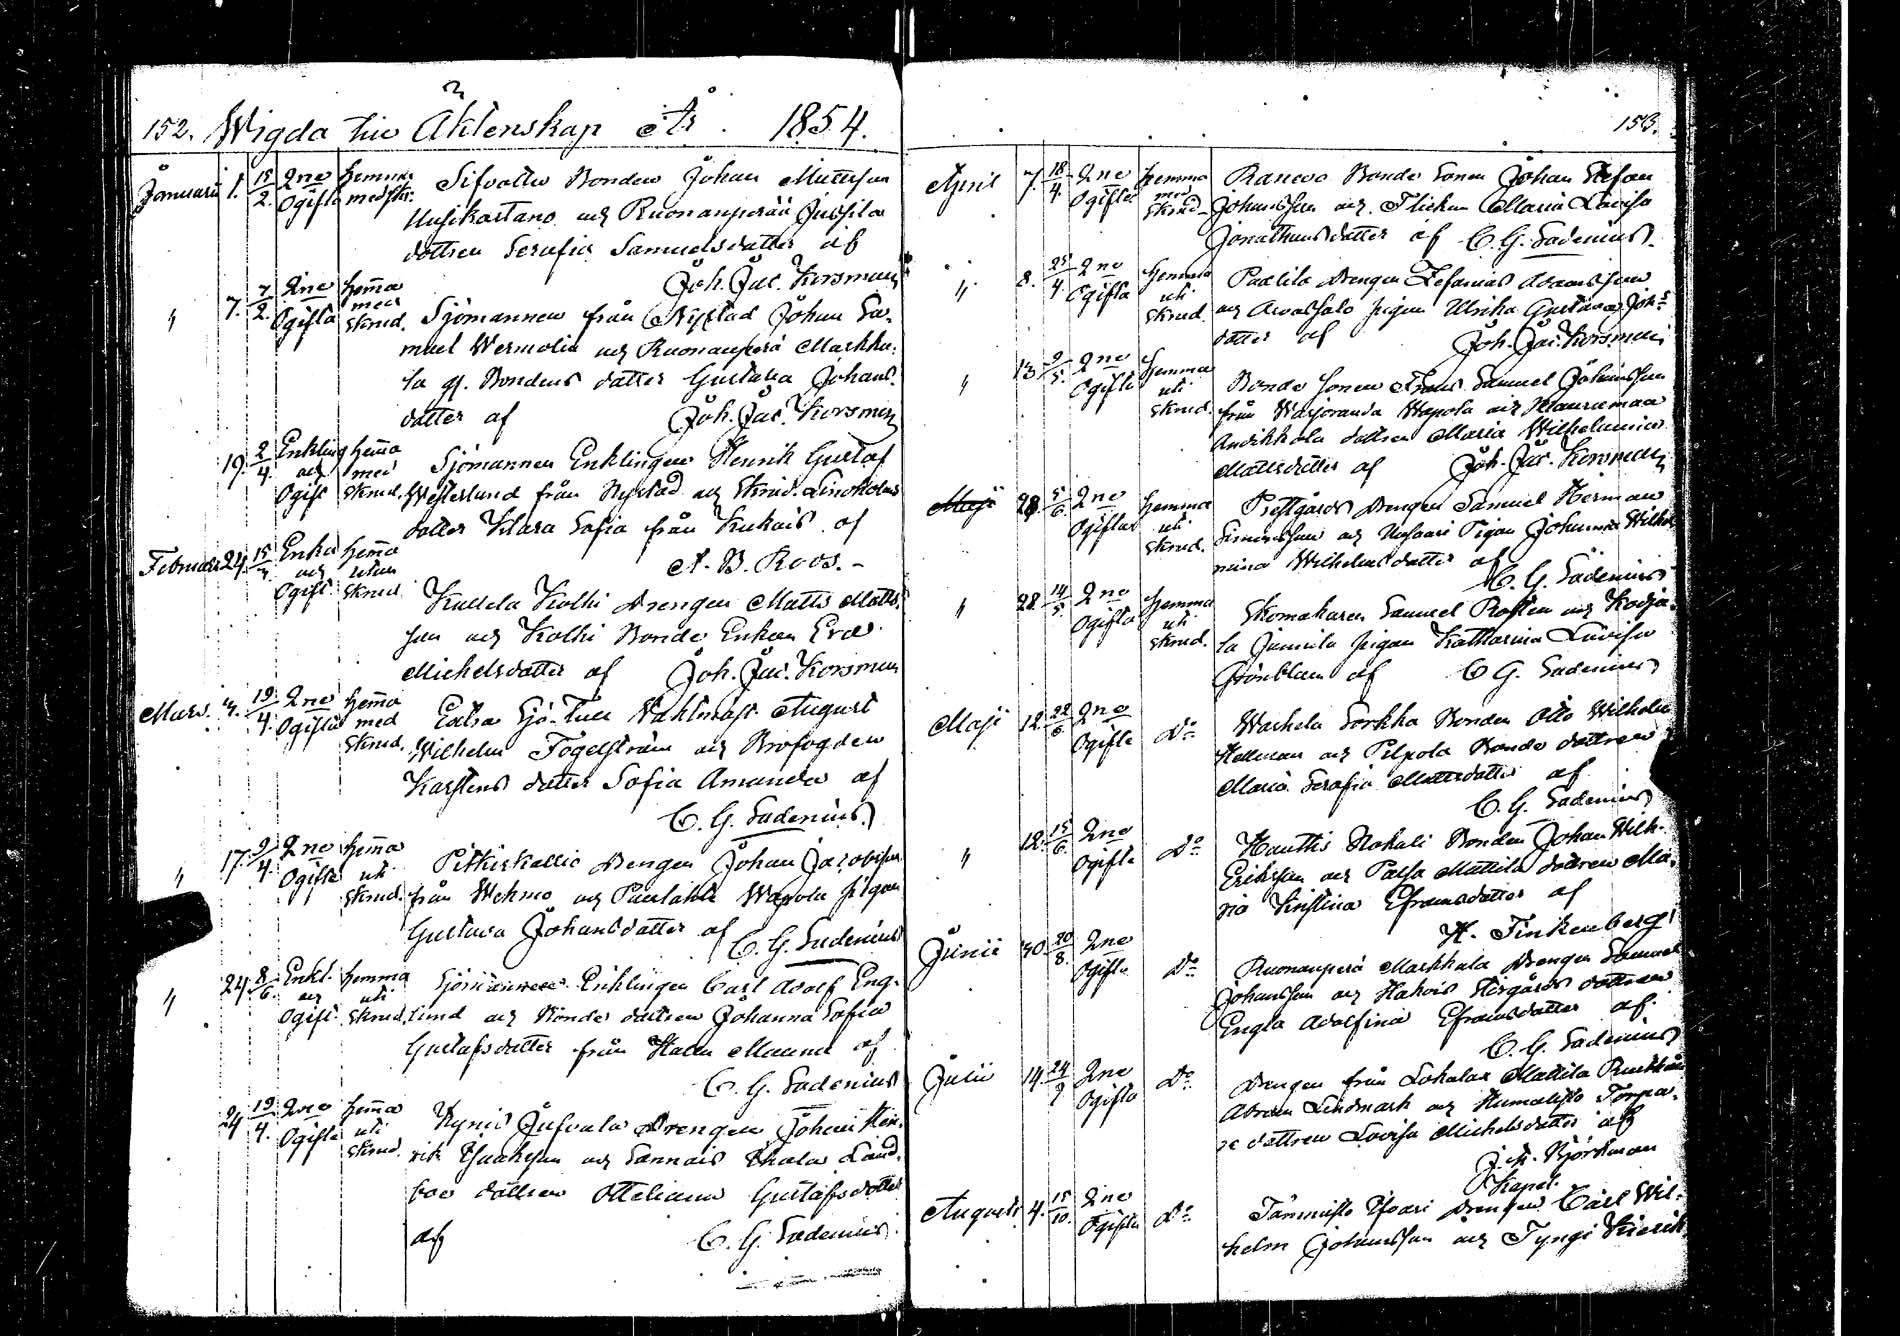 152. Wigda till Äktenskap År 1854.
Januarii 1. 15/2. 2ne Ogifta hemma med skr. Sifvallu Bonden Johan Mattsson
Uusikartano och Ruonanperää Jussila
dottren Serafia Samuelsdotter af
Joh. Jac. Korsman
" 7. 7/2. 2ne Ogifta hema med skrud. Sjömannen från Nystad Johan Sa-
muel Wermolin och Ruonanperä Markku-
la gl. Bondens dotter Gustava Johans-
dotter af Joh. Jac. Korsman
19. 2/4. Enkling och Ogift hema med skrud. Sjömannen Enklingen Henrik Gustaf
Westerlund från Nystad och Skrädd. Lindholms
dotter Klara Sofia från Kukais af
A. B. Roos.
Februari 24. 15/4. Enka och Ogift hema utan skrud Kullela Kolhi Drengen Matts Matts-
son och Kolhi Bonde Enkan Eva
Michelsdotter af Joh. Jac. Korsman
Mars. 3. 19/4. 2ne Ogifta hema med skrud. Extra Sjö Tull Vaktmäst. August
Wilhelm Fogelström och Brofogden
Karstens dotter Sofia Amanda af
C. G. Sadenius.
" 17. 9/4. 2ne Ogifta hema uti skrud. Pitkiskallio Drengen Johan Jacobsson
från Wehmo och Wapola pigan
Gustava Johansdotter af C. G. Sadenius
" 24. 8/6. Enkl. och Ogift hemma uti skrud. Sjömannen Enklingen Carl Adolf Eng-
lund och Bonde dottren Johanna Sofia
Gustafsdotter från Maunu af
C. G. Sadenius
24 19/4. 2ne Ogifta hema uti skrud. Drengen Johan Hen-
rik Isaksson och Sannais Land-
boe dottren Otteliana Gustafsdotter
af C. G. Sadenius.
153.
April 7. 18/4. 2ne Ogifta hemma med skrud Ranevo Bonde Sonen Johan Stefan
Johansson och Flickan Maria Lovisa
Jonathansdotter af C. G. Sadenius.
" 8. 25/4. 2ne Ogifta hemma uti skrud. Paalila Drengen Zefanias Adamsson
och Arvassalo pigan Ulrika Gustava Joh:s
dotter af Joh. Jac. Korsman
" 13. 9/5. 2ne Ogifta hemma uti skrud. Bonde Sonen Frans Samuel Johansson
från Warjoranda Wapola och Maurumaa
Andikkola dottren Maria Wilhelmina
Mattsdotter af Joh. Jac. Korsman
Maji 28. 5/6. 2ne Ogifta hemma uti skrud. Prestgårds Drengen Samuel Herman
Simonsson och Pigan Johanna Wilhel-
mina Wilhelmsdotter af
C. G. Sadenius
" 28. 14/5. 2ne Ogifta hemma uti skrud. Skomakaren Samuel Rosten och Kodja-
la Jaunila pigan Katharina Lovisa
Grönblom af C. G. Sadenius
Maji 12. 22/6. 2ne Ogifta Do Warhela Sorkka Bonden Otto Wilhelm
Hellman och Pilpola Bonde dottren
Maria Serafia Mattsdotter af
C. G. Sadenius
" 12. 15/6. 2ne Ogifta Do Hauttis Nokali Bonden Johan Wilh.
Eriksson och Palsa Mattila dottren Ma-
ria Kristina Efraimsdotter af
H. Finkenberg
Junii 30. 20/8. 2ne Ogifta Do Ruonanperä Markkula Drengen Samuel
Johansson och Hakois Storgårds dottren
Engla Adolfina Efraimsdotter af
C. G. Sadenius
Julii 14. 24/9 2ne Ogifta Do Drengen från Lokalax Mattila
Abram Lindmark och Humalisto Torpa-
re dottren Lovisa Michelsdotter af
J. A. Björkman
Kapel.
Augusti 4. 15/10. 2ne Ogifta Do Tammisto Ifvari Drengen Carl Wil-
helm Johansson och Tyngi